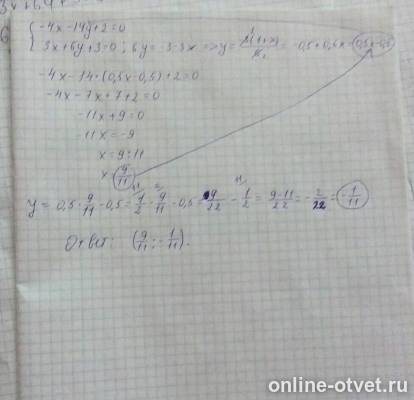 { -4x-14y+2=0
3x+6y+3=0 ; 6y=-3-3x => y= = -0,5+0,5x= 0,5x-0,5
-4x-14·(0,5x-0,5)+2=0
-4x-7x+7+2=0
-11x+9=0
-11x=-9
x=9:11
x= 9/11
y= 0,5·9/11-0,5= 1/2·9/11-0,5= 9/22-1/2= 9-11/22= -2/22= -1/11
Ответ: (9/11; -1/11).
online-otvet.ru